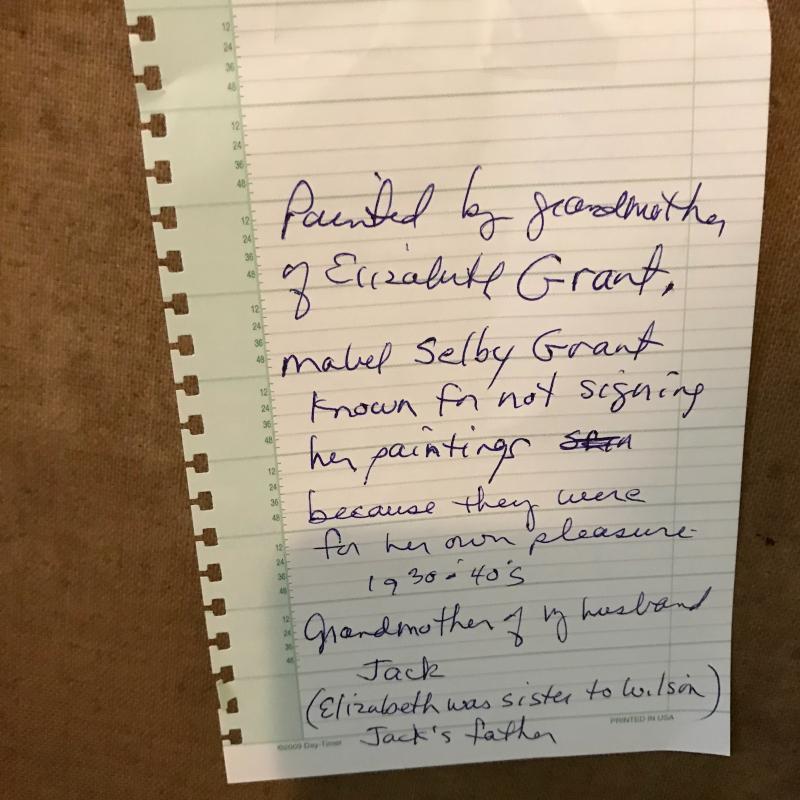 Painted by grandmother
of Elizabeth Grant.
Mabel Selby Grant
Known for not signing
her paintings
because they were
for her own pleasure
1930-'40's
Grandmother of my husband
Jack
(Elizabeth was sister to Wilson)
Jack's father
©2009 Day-Timer
PRINTED IN USA
12
24
36
48
12
24
36
48
12
24
36
48
12
24
36
48
12
24
36
48
12
24
36
48
12
24
36
48
12
24
36
48